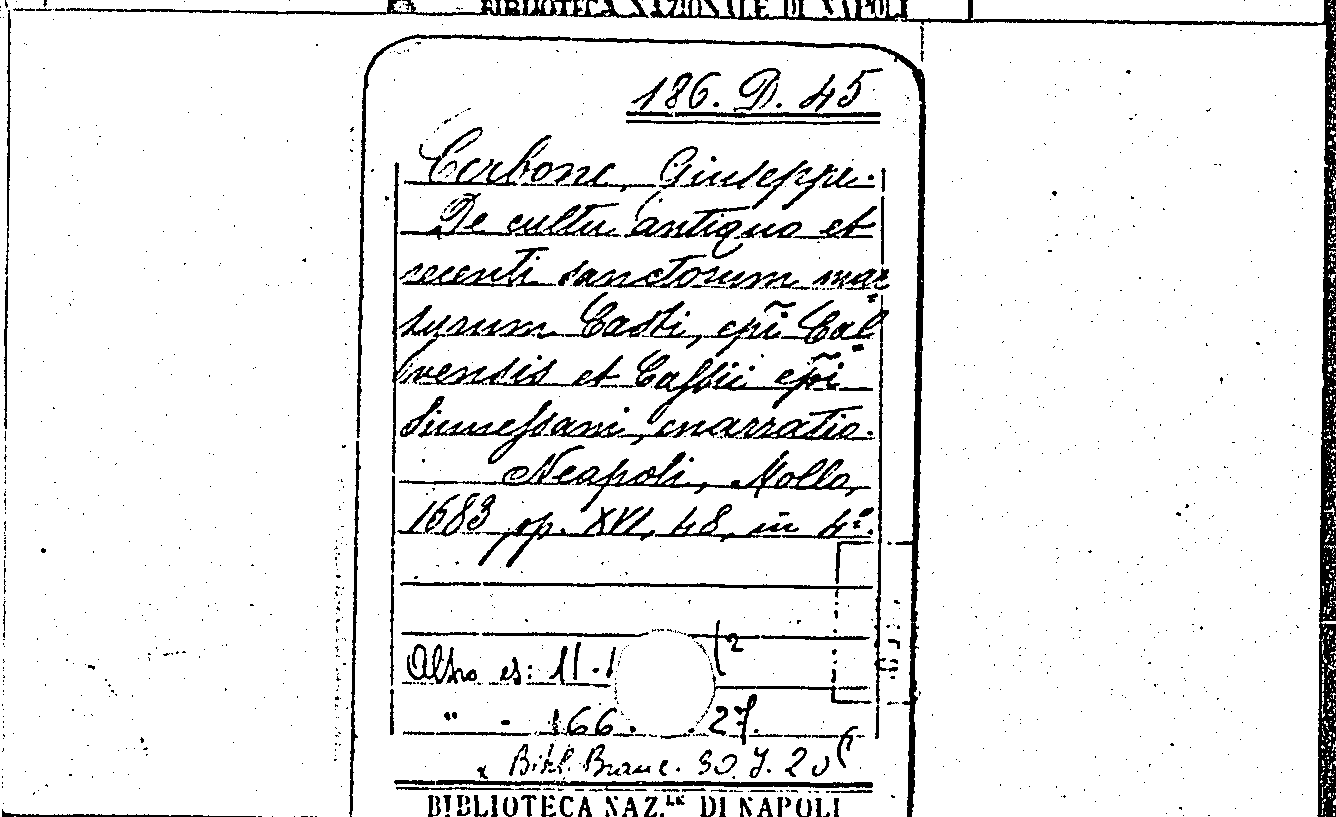 BIBLIOTECA NAZIONALE DI NAPOLI
186. D. 45
Cerbone, Giuseppe.
De cultu antiquo et
recenti sanctorum mar
tyrum Casti, epĩ Cal
vensis et Cassii epĩ
Sinuessani, enarratio.
Neapoli, Mollo,
1683 pp. XVI, 48, in 4º.
Altro es: 11.
" - 166. . 27.
x Bibl. Branc. 90. J. 20
BIBLIOTECA NAZ.LE DI NAPOLI